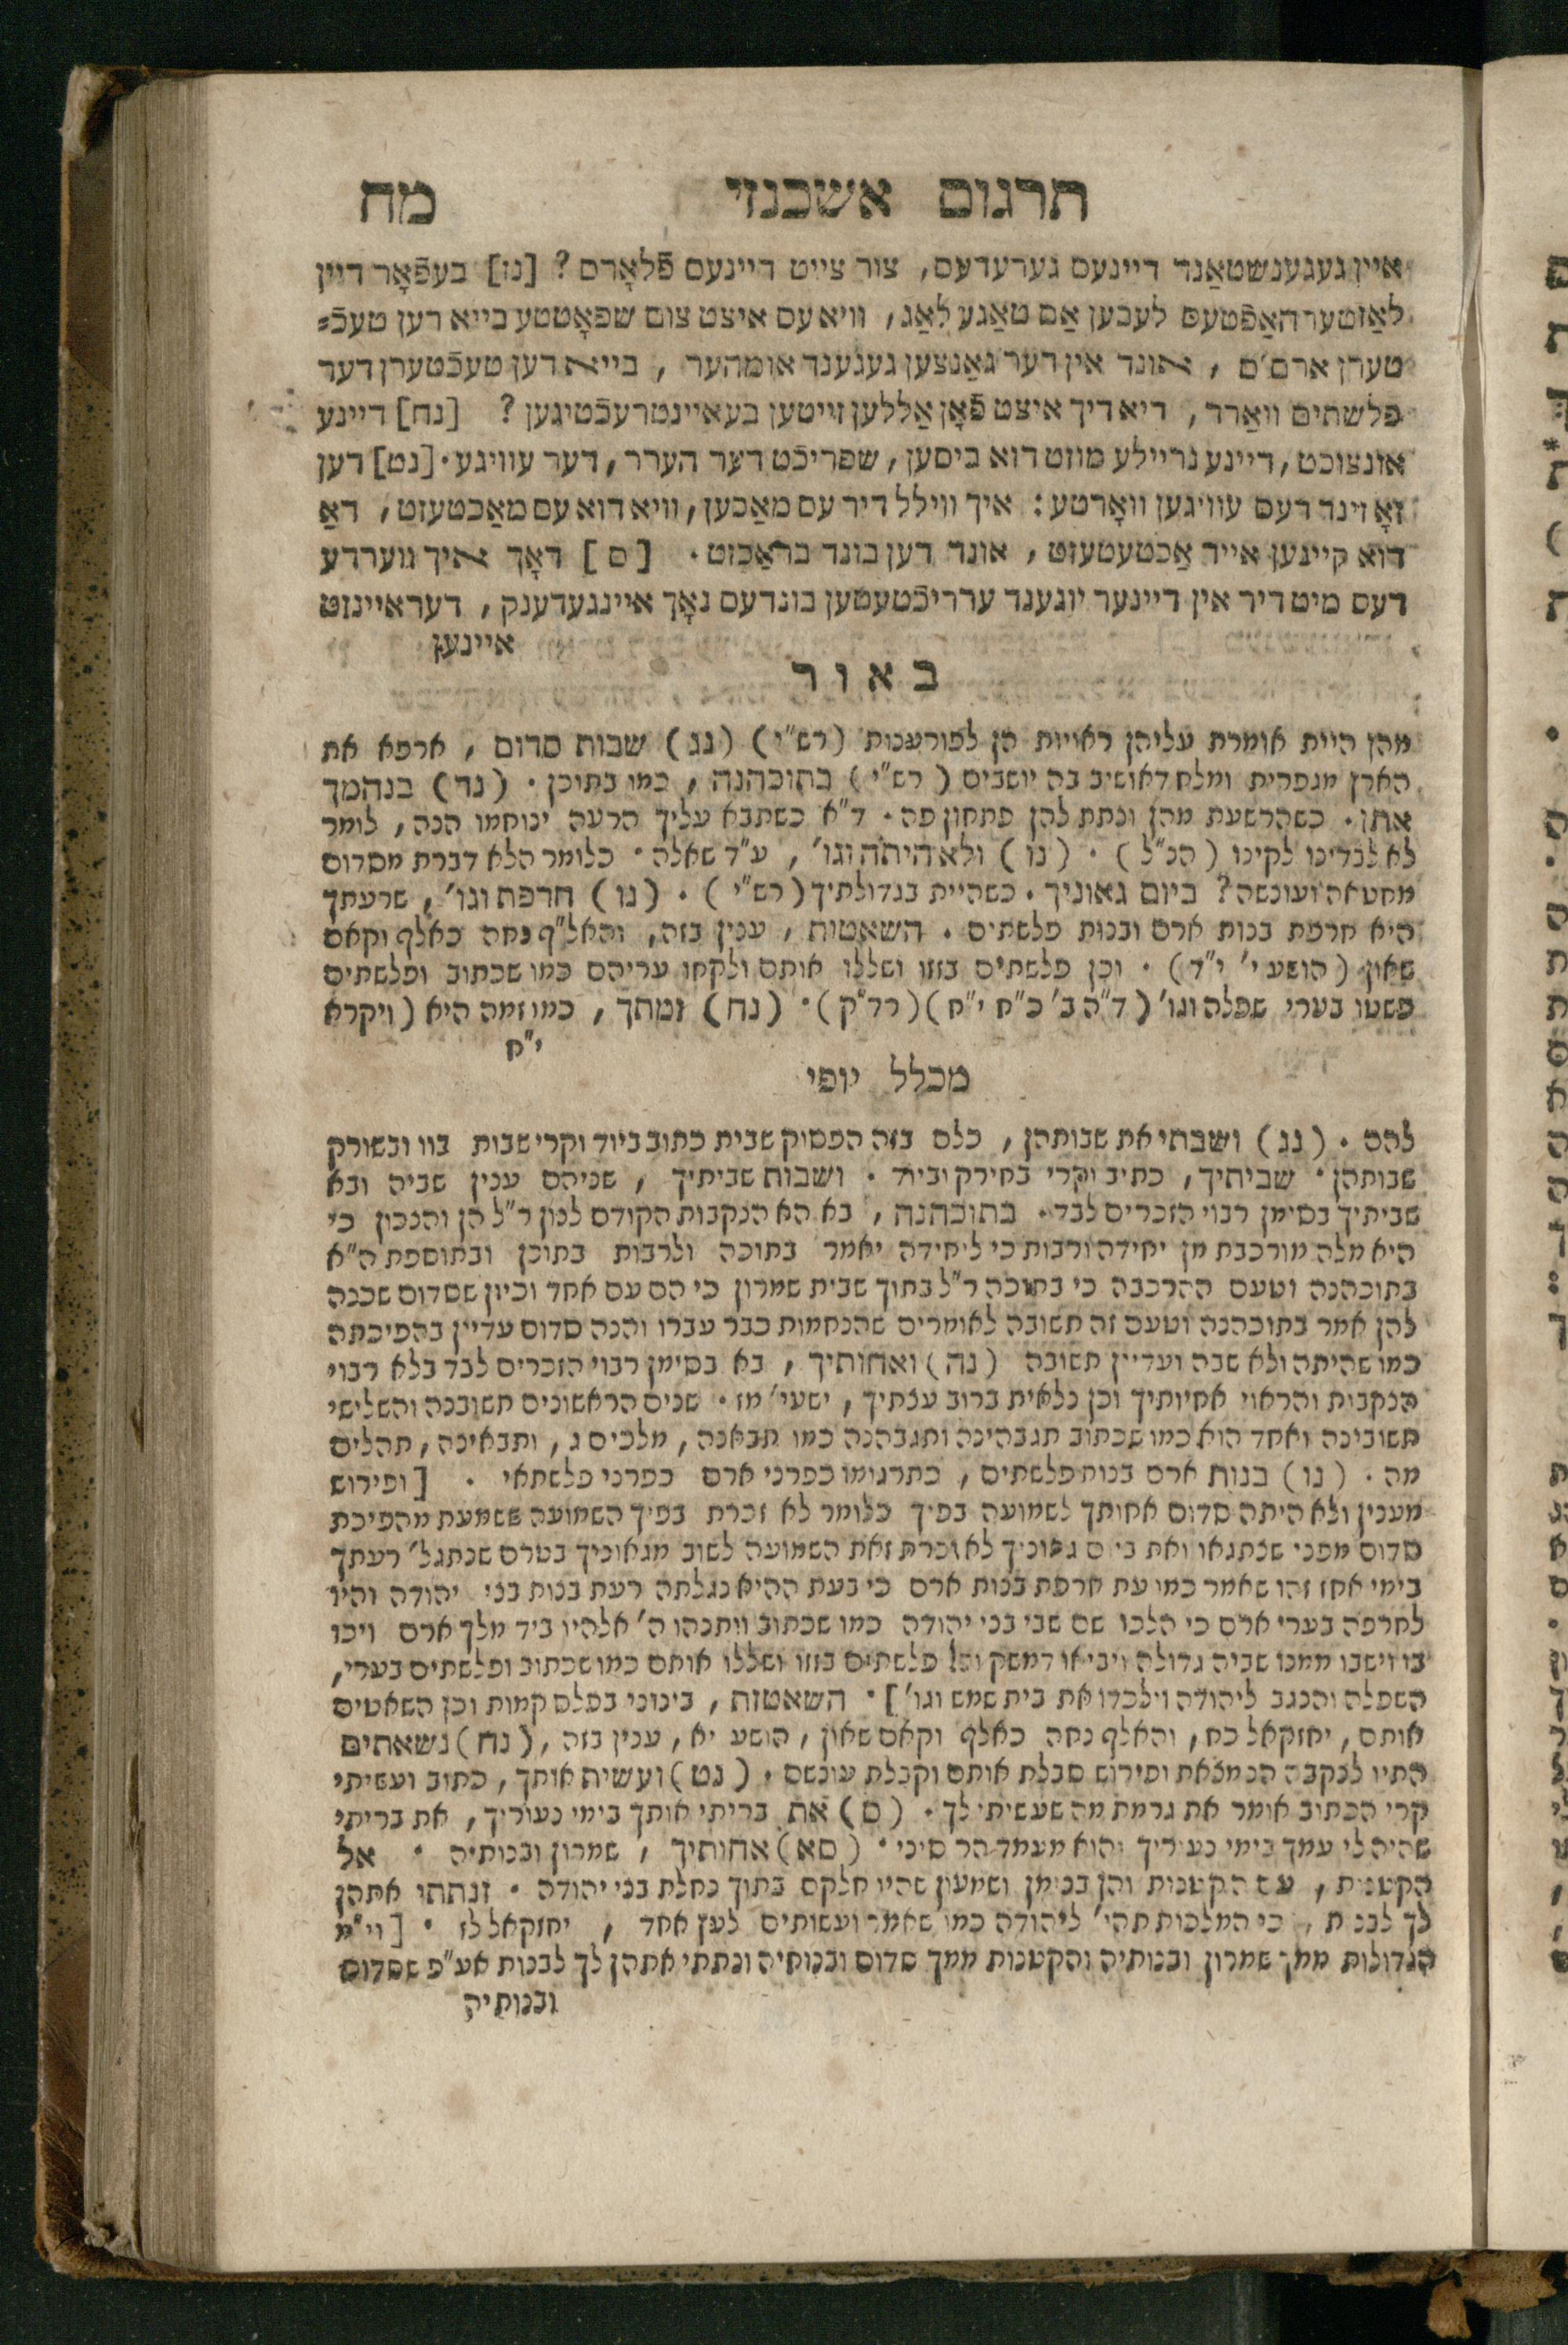 תרגום אשכנזי מח
איין געגענשטאַנד דיינעס גערעדעס, צור צייט דיינעס פֿלאָרס? [נז] בעפֿאָר דיין
לאַזטערהאַפֿטעס לעבען אַם טאַגע לאַג, וויא עס איצט צום שפאָטטע בייא דען טעכֿ=
טערן ארם'ס, אונד אין דער גאַנצען געגענד אומהער, בייא דען טעכֿטערן דער
פלשתים וואַרד, דיא דיך איצט פֿאָן אַללען זייטען בעאיינטרעכֿטיגען? [נח] דיינע
אונצוכט, דיינע גרייילע מוזט דוא ביסען, שפריכֿט דער הערר, דער עוויגע. [נט] דען
זאָ זינד דעס עוויגען וואָרטע: איך ווילל דיר עס מאַכען, וויא דוא עס מאַכטעזט, דאַ
דוא קיינען אייד אַכטעטעזט, אונד דען בונד בראַכזט. [ס] דאָך איך ווערדע
דעס מיט דיר אין דיינער יוגענד ערריכֿטעטען בונדעס נאָך איינגעדענק, דעראיינזט
איינען
באור
מהן היית אומרת עליהן ראויות הן לפורענות (רש"י) (נג) שבות סדום, ארפא את
הארץ מגפרית ומלח דאושיב בה יושבים (רש"י) בתוכהנה, כמו בתוכן. (נד) בנחמך
אתן. כשהרשעת מהן ונתת להן פתחון פה. ד"א כשתבא עליך הרעה ינוחמו הנה, לומר
לא לבדינו לקינו (הנ"ל). (נו) ולא היתה וגו', ע"ד שאלה. כלומר הלא דברת מסדום
מחטאה ועונשה? ביום גאוניך. כשהיית בגדולתיך (רש"י). (נו) חרפת וגו', שרעתך
היא חרפת בנות ארם ובנות פלשתים. השאטות, ענין בזה, והאל"ף נחה כאלף וקאם
שאון (הושע י' י"ד). וכן פלשתים בזזו ושללו אותם ולקחו עריהם כמו שכתוב ופלשתים
פשטו בערי שפלה וגו' (ד"ה ב' כ"ח י"ח) (רד"ק). (נח) זמתך, כמו זמה היא (ויקרא
י"ח
מכלל יופי
להם. (נג) ושבתי את שבותהן, כלם בזה הפסוק שבית כתוב ביוד וקרי שבות בוו ובשורק
שבותהן. שביתיך, כתיב וקרי בחירק וביוד. ושבות שביתיך, שניהם ענין שביה ובא
שביתיך בסימן רבוי הזכרים לבד. בתוכהנה, בא הא הנקבות הקודם לנון ר"ל הן והנכון כי
היא מלה מורכבת מן יחידה ורבות כי ליחידה יאמר בתוכה ולרבות בתוכן ובתוספת ה"א
בתוכהנה וטעם ההרכבה כי בתוכה ר"ל בתוך שבית שמרון כי הם עם אחד וכיון שסדום שכנה
להן אמר בתוכהנה וטעם זה תשובה לאומרים שהנחמות כבר עברו והנה סדום עדיין בהפיכתה
כמו שהיתה ולא שבה ועדיין תשובה (נה) ואחותיך, בא בסימן רבוי הזכרים לבד בלא רבוי
הנקבות והראוי אחיותיך וכן נלאית ברוב עצתיך, ישעי' מז. שנים הראשונים תשובנה והשלישי
תשובינה ואחד הוא כמו שכתוב תגבהינה ותגבהנה כמו תבאנה, מלכים ג, ותבאינה, תהלים
מה. (נו) בנות ארם בנות פלשתים, כתרגומו כפרני ארם כפרני פלשתאי. [ופירוש
מענין ולא היתה סדום אחותך לשמועה בפיך כלומר לא זכרת בפיך השמועה ששמעת מהפיכת
סדום מפני שנתגאו ואת ביום גאוניך לא זכרת זאת השמועה לשוב מגאוניך בטרם שנתגל' רעתך
בימי אחז זהו שאמר כמו עת חרפת בנות ארם כי בעת ההיא נגלתה רעת בנות בני יהודה והיו
לחרפה בערי ארם כי הלכו שם שבי בני יהודה כמו שכתוב ויתנהו ה' אלהיו ביד מלך ארם ויכו
בו וישבו ממנו שביה גדולה ויביאו דמשק וכן פלשתים בזזו ושללו אותם כמו שכתוב ופלשתים בערי,
השפלה והנגב ליהודה וילכדו את בית שמש וגו']. השאטות, בינוני בפלס קמות וכן השאטים
אותם, יחזקאל כח, והאלף נחה כאלף וקאם שאון, הושע יא, ענין בזה, (נח) נשאתים
התיו לנקבה הנמצאת ופירוש סבלת אותם וקבלת עונשם. (נט) ועשית אותך, כתוב ועשיתי
קרי הכתוב אומר את גרמת מה שעשיתי לך. (ס) את בריתי אותך בימי נעוריך, את בריתי
שהיה לי עמך בימי נעוריך והוא מעמד הר סיני. (סא) אחותיך, שמרון ובנותיה. אל
הקטנות, עם הקטנות והן בנימן ושמעון שהיו חלקם בתוך נחלת בני יהודה. ונתתי אתהן
לך לבנות, כי המלכות תהי' ליהודה כמו שאמר ועשותים לעץ אחד, יחזקאל לז. [וי"מ
הגדולות ממך שמרון ובנותיה והקטנות ממך סדום ובנותיה ונתתי אתהן לך לבנות אע"פ שסדום
ובנותיה